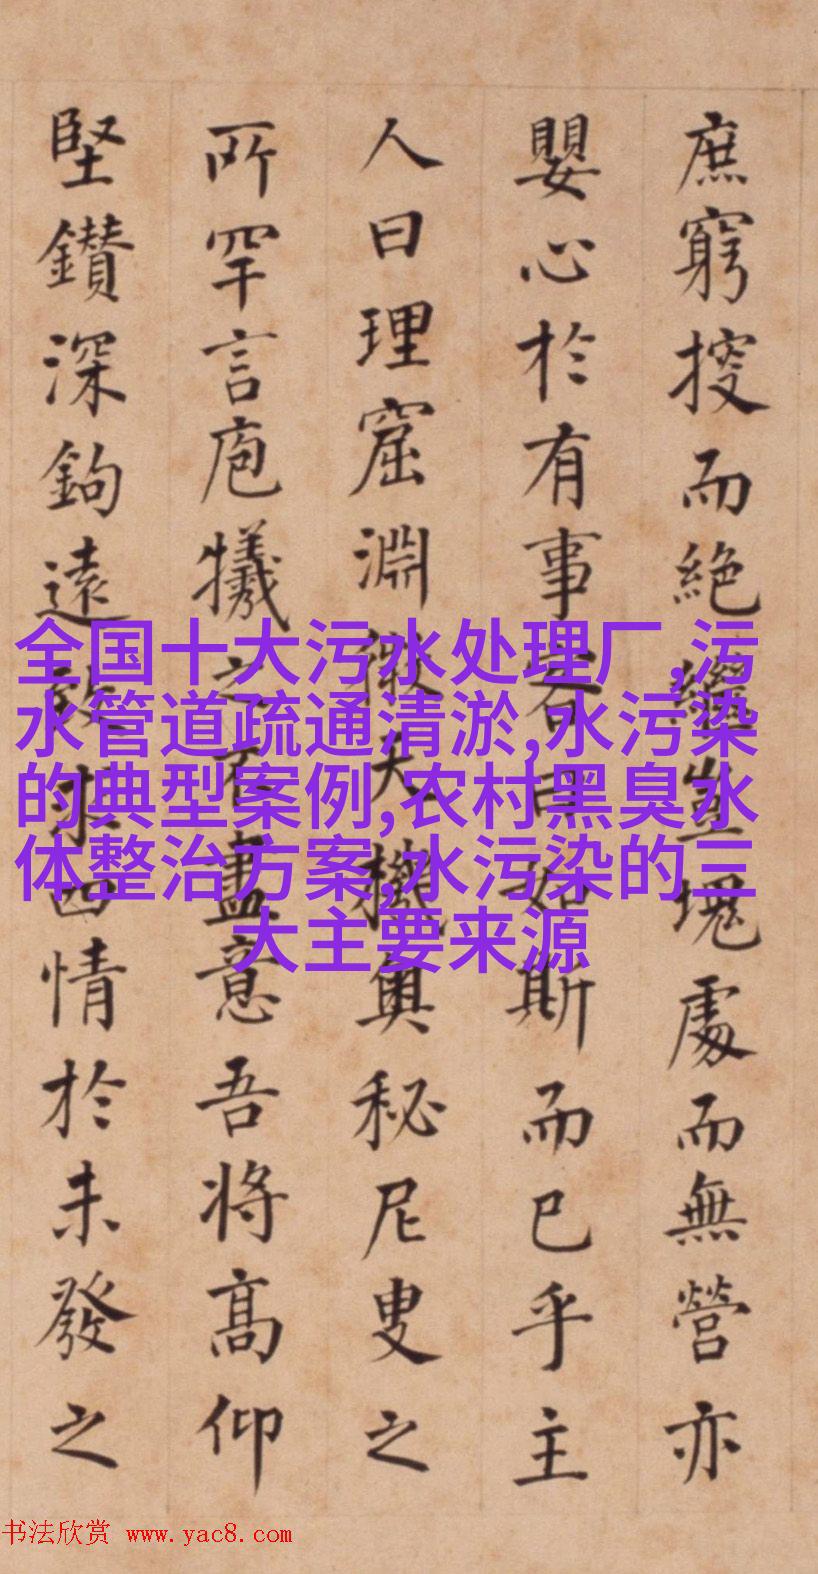 庶窮搜而絶繼豈塊處而無營亦
嬰心於有事客曰如斯而已乎主
人曰理窟淵微天機奧秘尼叟之
所罕言庖犧之不盡意吾將高仰
堅鑽深鉤遠致求四情於未發之
全国十大污水处理厂,污
水管道疏通清淤,水污染
的典型案例,农村黑臭水
体整治方案,水污染的三
大主要来源
书法欣赏 www.yac8.com